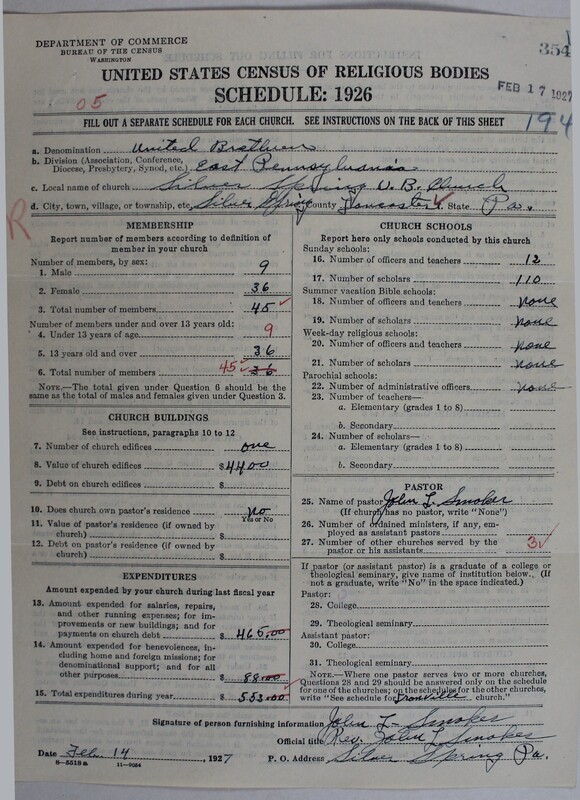 DEPARTMENT OF COMMERCE
BUREAU OF THE CENSUS
WASHINGTON
354
UNITED STATES CENSUS OF RELIGIOUS BODIES
SCHEDULE: 1926
FEB 17 1927
05
FILL OUT A SEPARATE SCHEDULE FOR EACH CHURCH. SEE INSTRUCTIONS ON THE BACK OF THIS SHEET
194
a. Denomination United Brethren
b. Division (Association, Conference,
Diocese, Presbytery, Synod, etc.) East Pennsylvania
c. Local name of church Silver Spring U. B. Church
d. City, town, village, or township, etc. Silver Spring County Lancaster State Pa.
R
MEMBERSHIP
Report number of members according to definition of
member in your church
Number of members, by sex:
1. Male 9
2. Female 36
3. Total number of members 45
Number of members under and over 13 years old:
4. Under 13 years of age 9
5. 13 years old and over 36
6. Total number of members 45 36
NOTE.—The total given under Question 6 should be the
same as the total of males and females given under Question 3.
CHURCH BUILDINGS
See instructions, paragraphs 10 to 12
7. Number of church edifices one
8. Value of church edifices $4400
9. Debt on church edifices $
10. Does church own pastor's residence? No
Yes or No
11. Value of pastor's residence (if owned by
church) $
12. Debt on pastor's residence (if owned by
church) $
EXPENDITURES
Amount expended by your church during last fiscal year
13. Amount expended for salaries, repairs,
and other running expenses; for im-
provements or new buildings; and for
payments on church debt $465.00
14. Amount expended for benevolences,
including home and foreign missions; for
denominational support; and for all
other purposes $88.00
15. Total expenditures during year $553.00
CHURCH SCHOOLS
Report here only schools conducted by this church
Sunday schools:
16. Number of officers and teachers 12
17. Number of scholars 110
Summer vacation Bible schools:
18. Number of officers and teachers none
19. Number of scholars none
Week-day religious schools:
20. Number of officers and teachers none
21. Number of scholars none
Parochial schools:
22. Number of administrative officers none
23. Number of teachers—
a. Elementary (grades 1 to 8)
b. Secondary
24. Number of scholars—
a. Elementary (grades 1 to 8)
b. Secondary
PASTOR
25. Name of pastor John L. Smoker
(If church has no pastor, write "None")
26. Number of ordained ministers, if any, em-
ployed as assistant pastors
27. Number of other churches served by the
pastor or his assistants 3
If pastor (or assistant pastor) is a graduate of a college or
theological seminary, give name of institution below. (If
not a graduate, write "No" in the space indicated.)
Pastor:
28. College
29. Theological seminary
Assistant pastor:
30. College
31. Theological seminary
NOTE.—Where one pastor serves two or more churches,
Questions 28 and 29 should be answered only on the schedule
for one of the churches; on the schedules for the other churches,
write "See schedule for Ironville church."
Signature of person furnishing information John L. Smoker
Official title Rev. John L Smoker
Date Feb. 14, 1927 P. O. Address Silver Spring Pa.
8-5518a 11-9564